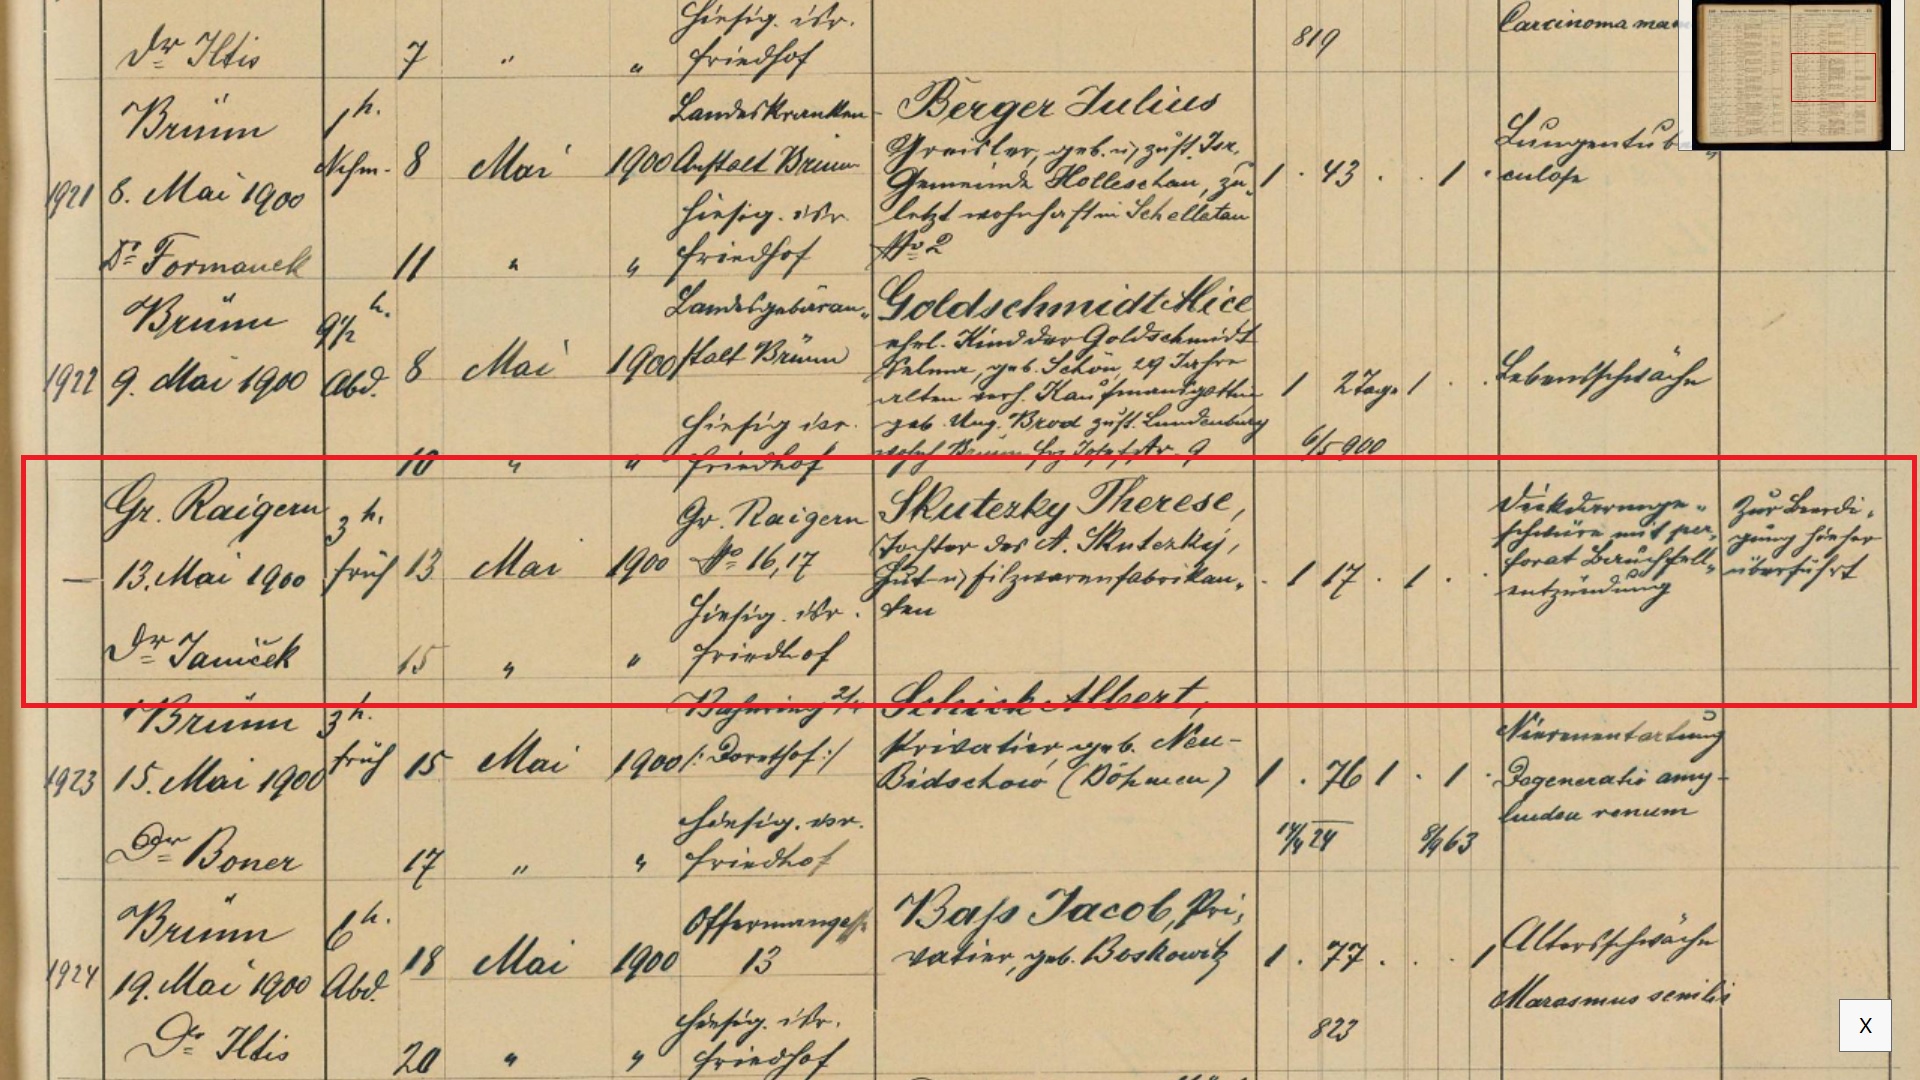 hiesig. isr.
Dr Iltis 7 " " friedhof 819 Carcinoma
Brünn 1 h. Landeskranken- Berger Julius
1921 8. Mai 1900 Nchm. 8 Mai 1900 Anstalt Brünn Greisler, geb. u. zust. Isr. 1 . 43 . . 1 . Lungentub
Gemeinde Holleschau, zu- culose
hiesig. isr. letzt wohnhaft in Schelletau
Dr Formanek 11 " " friedhof No 2
Brünn 9 1/2 h. Landesgebäran- Goldschmidt Alice
1922 9. Mai 1900 Abd. 8 Mai 1900 stalt Brünn ehel. Kind der Goldschmidt 1 2 Tage 1 . . Lebensschwäche
Selma, geb. Schön, 29 Jahre
alten verh. Kaufmannsgattin
hiesig isr. geb. Ung. Brod zust. Lundenburg 6/5 900
10 " " friedhof wohnh Brünn frz Josefstr. 9
Gr. Raigern 3 h. Gr. Raigern Skutezky Therese, Dickdarmge- Zur Beerdi-
— 13. Mai 1900 früh 13 Mai 1900 No 16, 17 Tochter des A. Skutezky, . 1 17 . 1 . . schwüre mit per- gung hieher
Hut- u. Filzwarenfabrikan- forat Bauchfell- überführt
hiesig. isr. ten entzündung
Dr Janiček 15 " " friedhof
Brünn 3 h. Schick Albert,
1923 15. Mai 1900 früh 15 Mai 1900 /: Dorethof :/ Privatier, geb. Neu- 1 . 76 1 . 1 . Nierenentartung
Bidschow (Böhmen) Degeneratio amy-
hiesig. isr. 24 8/9 63 renum
Dr Boner 17 " " friedhof
Brünn 6 h. Offermanngasse Bass Jacob, Pri-
1924 19. Mai 1900 Abd. 18 Mai 1900 13 vatier, geb. Boskowitz 1 . 77 . . . 1 Altersschwäche
Marasmus senilis
hiesig. isr. 823
Dr Iltis 20 " " friedhof
X